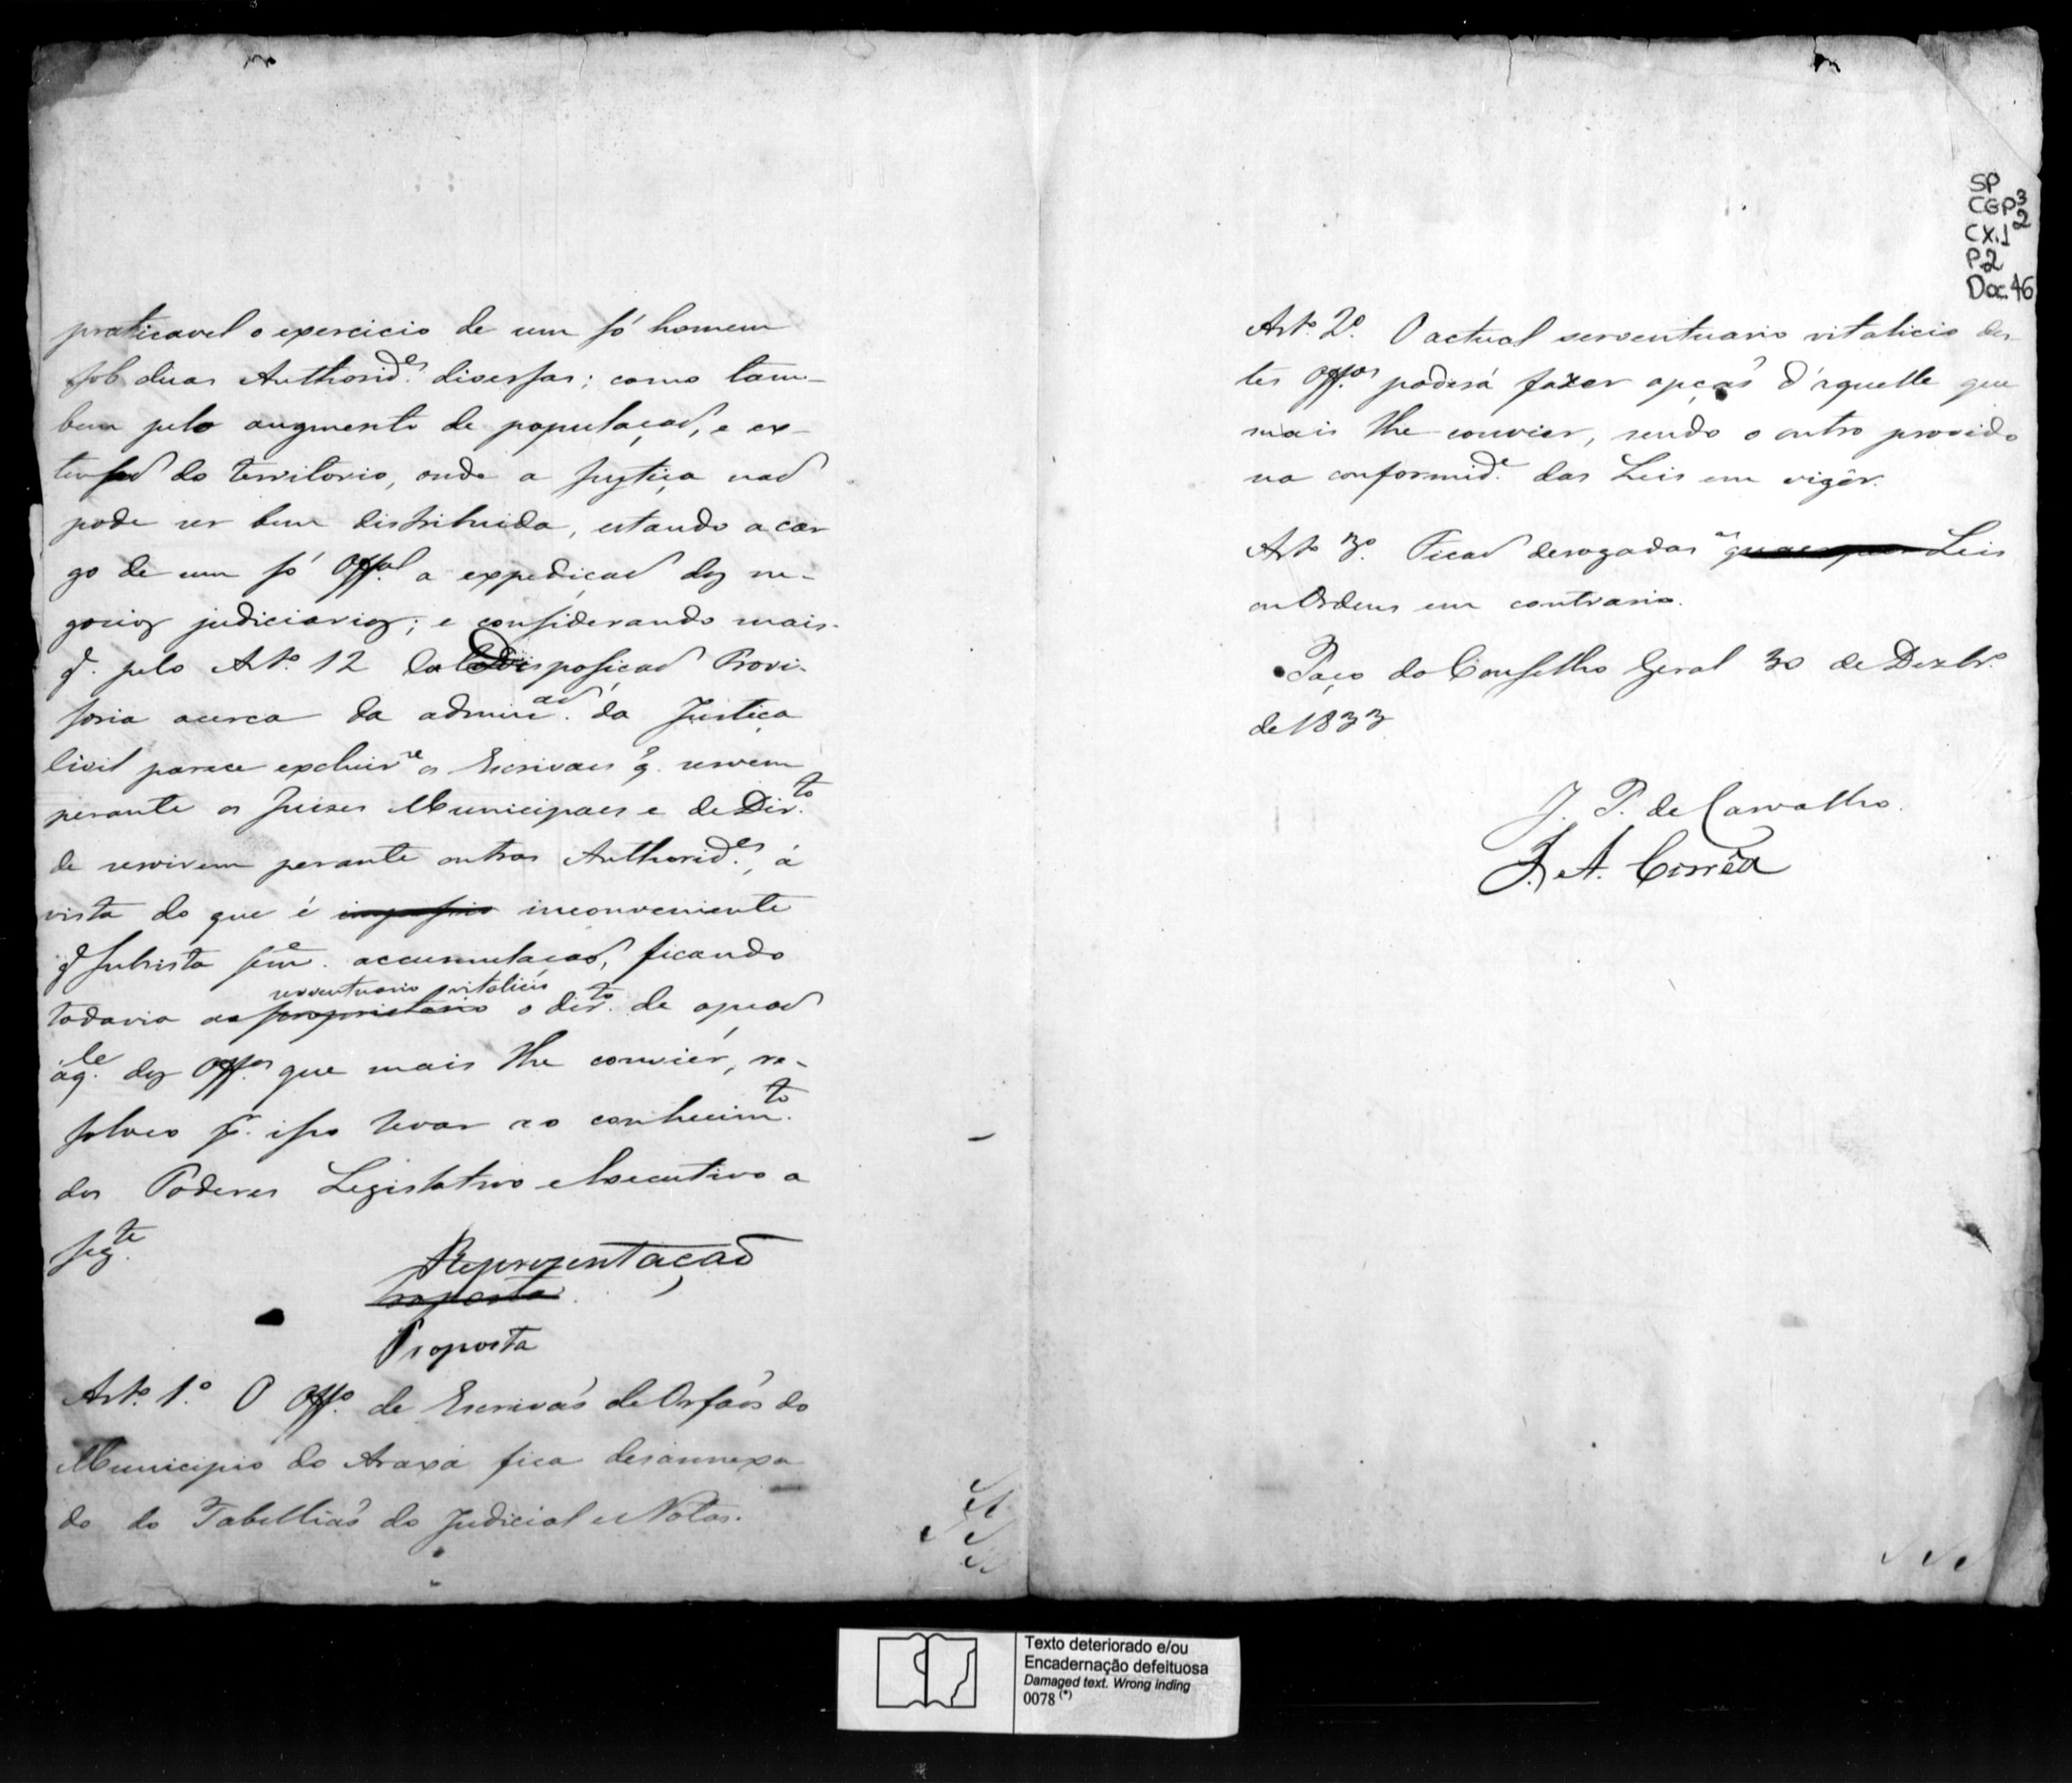 praticavel o exercicio de um só homem
sob duas Authorid.es diversas; como tam-
bem pelo augmento de populaçaõ, e ex-
tensaõ do territorio, onde a Justiça naõ
pode ser bem distribuida, estando a car
go de um só Off.al a expediçaõ dos ne-
gocios judiciarios; e considerando mais
q. pelo Art.o 12 da Disposiçaõ Provi-
soria acerca da admin.aõ da Justiça
Civil parece excluir se os Escrivaes q. servem
perante os Juizes Municipaes e de Dir.to
de servirem perante outras Authorid.es, á
vista do que é inconveniente
q. subsista sem.e accumulaçaõ, ficando
serventuario vitalicio
todavia ao proprietario o dir.to de opçaõ
áq.le dos Off.os que mais lhe conviér, re-
solveo p.r isso levar ao conhecim.to
dos Poderes Legislativo e Executivo a
seg.te
Reprezentaçaõ
proposta
Proposta
Art.o 1.o O Off.o de Escrivaõ de Orfaõs do
Municipio do Araxá fica desannexa
do do Tabelliaõ do Judicial e Notas.
SP
CGP 3
2
CX.1
P2
Doc.46
Art.o 2.o O actual serventuario vitalicio des-
tes Off.os poderá fazer opçaõ d'aquelle que
mais lhe convier, sendo o outro provido
na conformid.e das Leis em vigôr.
Art.o 3.o Ficaõ derogadas as quaesquer Leis
ou Ordens em contrario.
Paço do Conselho Geral 30 de Dezbr.o
de 1833
J. P. de Carvalho.
J. A. Corrêa
Texto deteriorado e/ou
Encadernação defeituosa
Damaged text. Wrong inding
0078 (*)